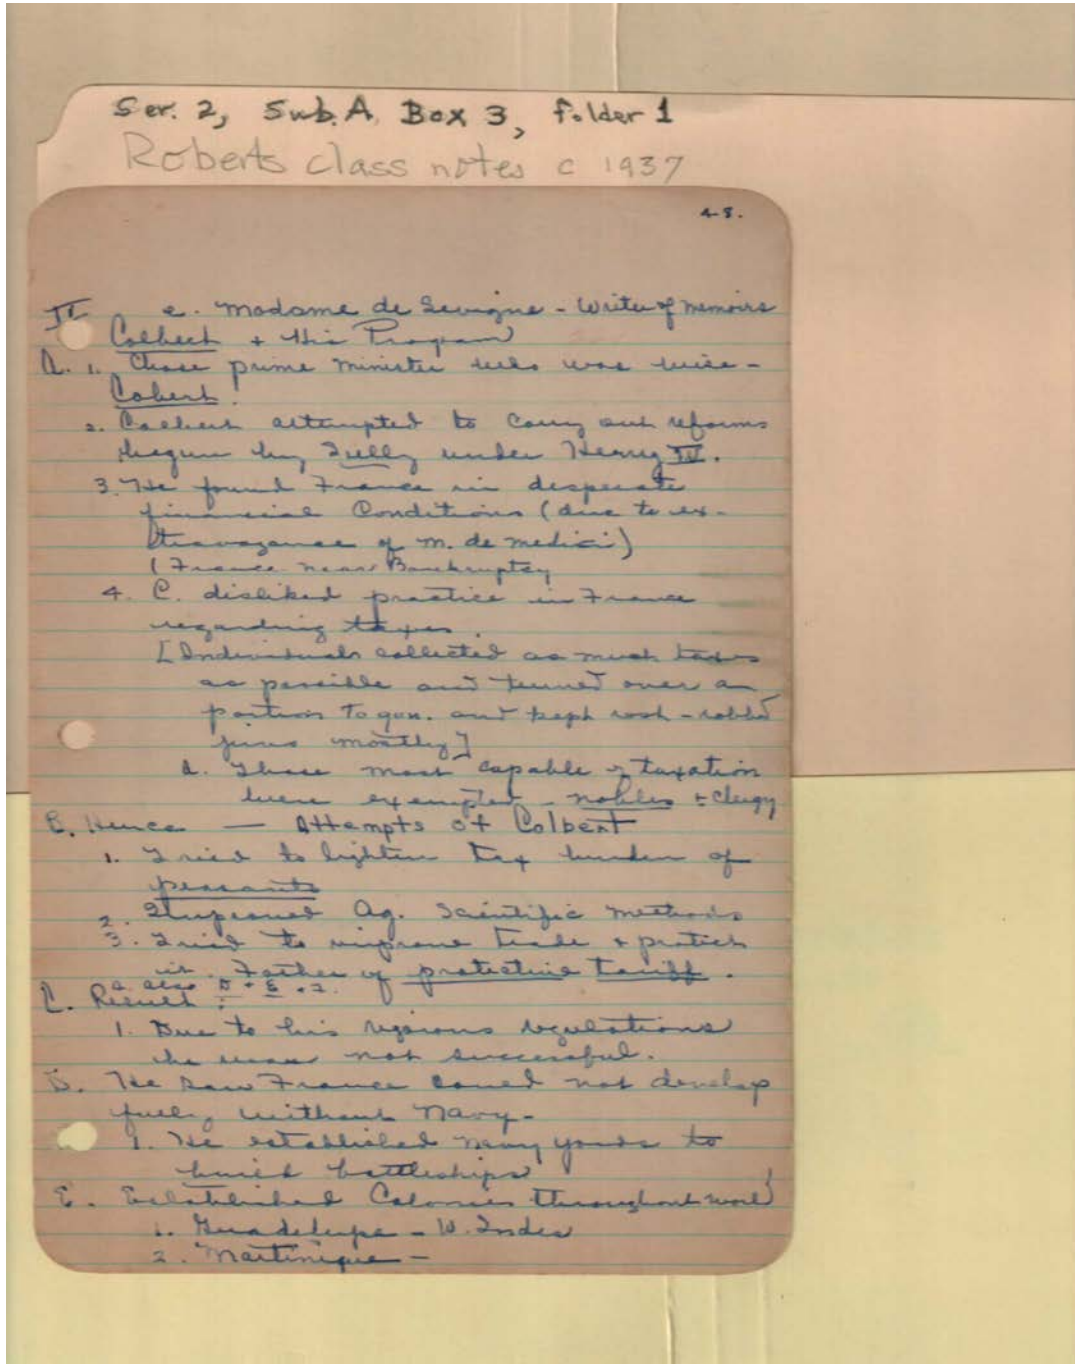 Ser. 2, Sub. A, Box 3, folder 1
Roberts class notes c 1937
48.
e. Madame de Sevigne - Writer of memoirs
IV Colbert + His Program
A. 1. Chose prime minister who was wise -
Cobert!
2. Colbert attempted to carry out reforms
begun by Sully under Henry IV.
3. He found France in desperate
financial Conditions (due to ex-
travagance of M. de Medici)
(France near Bankruptcy
4. C. disliked practice in France
regarding taxes.
[Individuals collected as much taxes
as possible and turned over a
portion to gov. and kept rest - robbed
mostly]
a. Those most capable of taxation
were exempted - nobles + clergy
B. Hence — Attempts of Colbert
1. Tried to lighten tax burden of
peasants
2. Improved Ag. Scientific methods
3. Tried to improve trade + protect
it. Father of protective tariff.
a. also D + E + 2.
C. Result:
1. Due to his rigorous regulations
he was not successful.
D. He saw France could not develop
fully without Navy -
1. He established navy yards to
build battleships
E. Established Colonies throughout world
1. Guadelupe - W. Indes
2. Martinique -